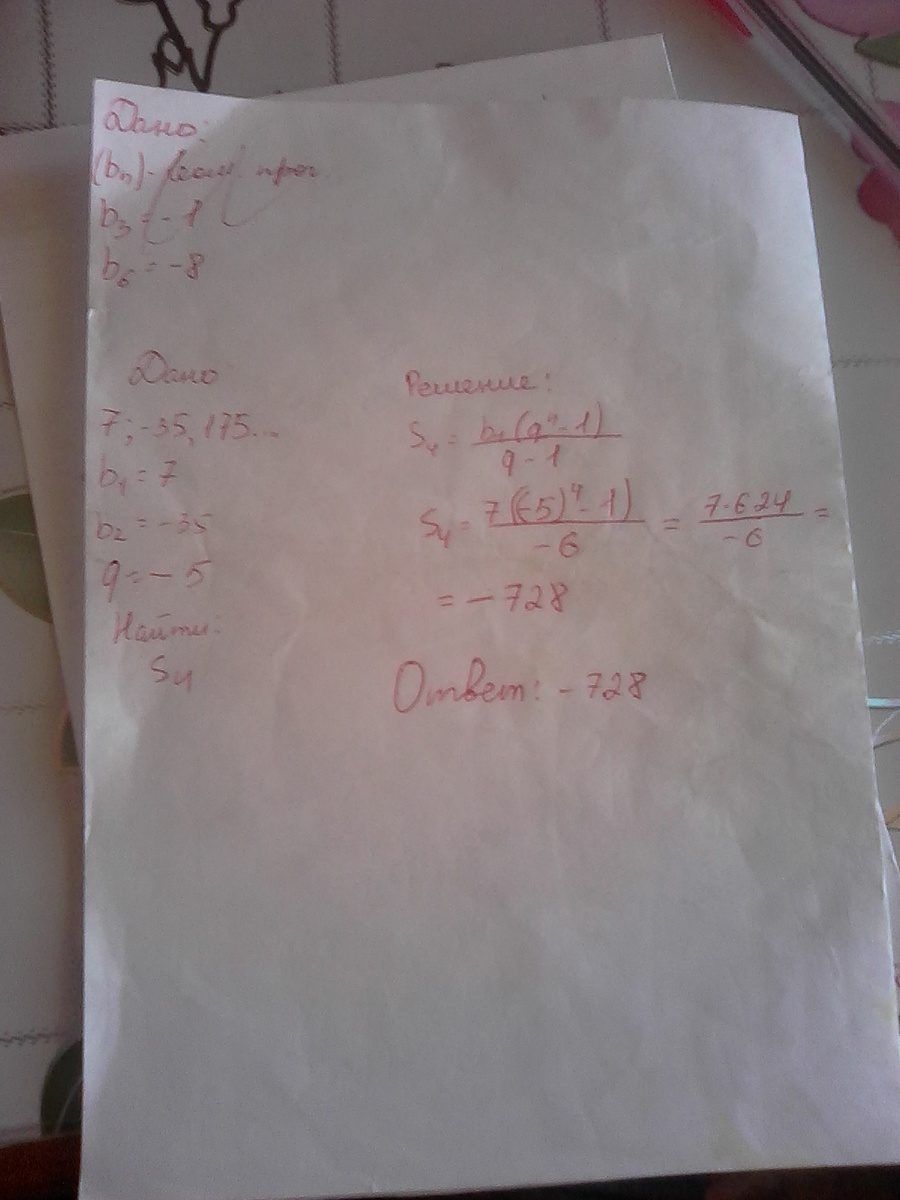 Дано:
(bn)- геом. прог
b3 = - 1
b6 = -8
Дано
7; -35, 175...
b1 = 7
b2 = -35
q = - 5
Найти:
S4
Решение:
S4 = b1 (q⁴ - 1) / q - 1
S4 = 7((-5)⁴ - 1) / -6 = 7·624 / -6 =
= - 728
Ответ: - 728